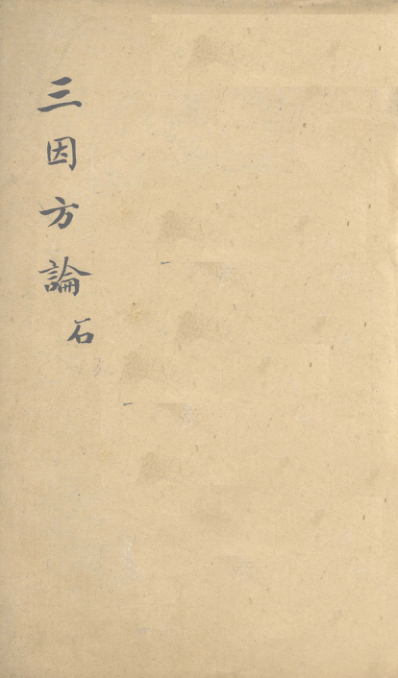 三因方論
石